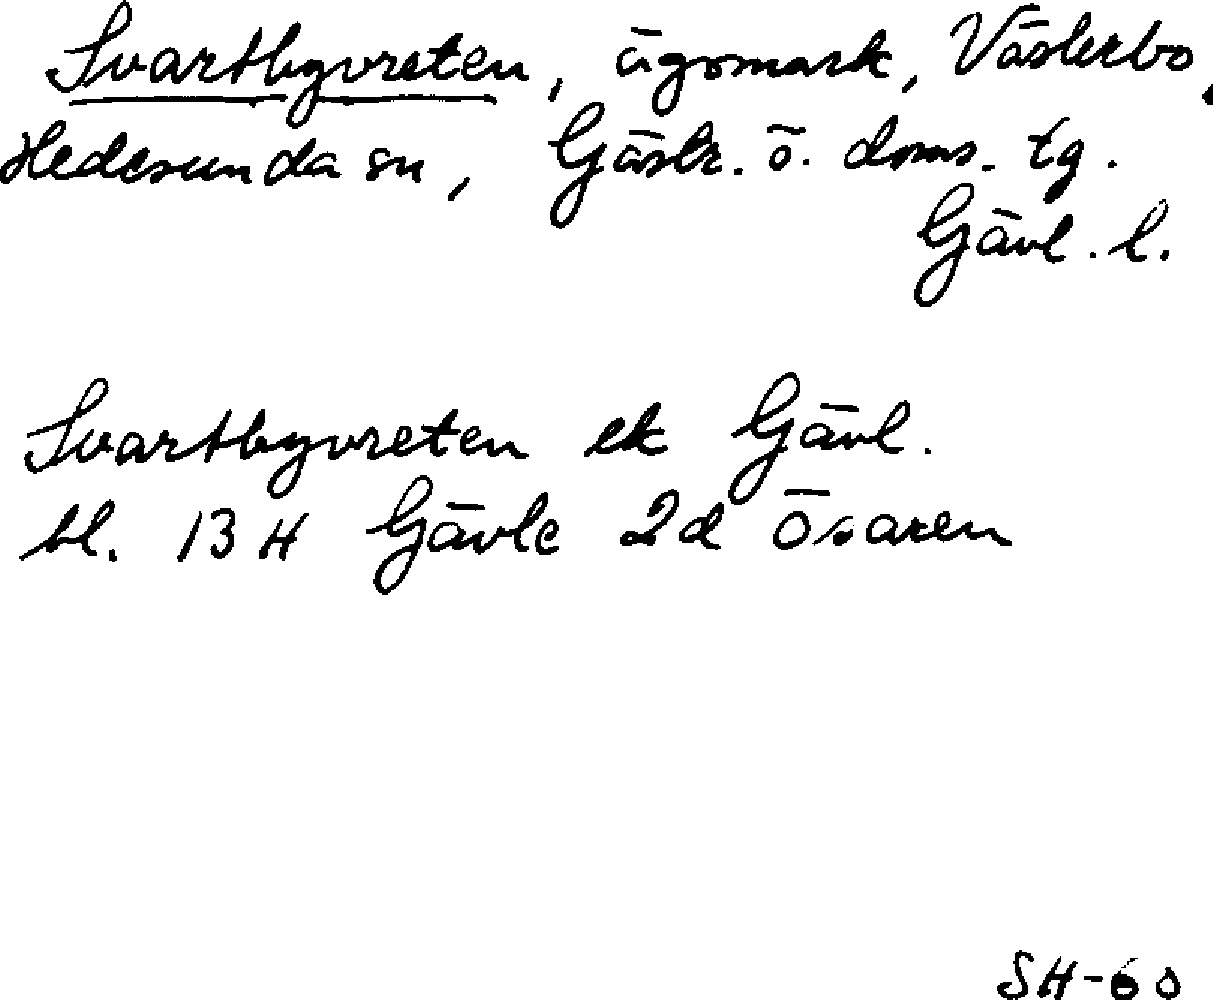 Svartbyvreten, ägomark, Västerbo,
Hedesunda sn, Gästr. ö. doms. tg.
Gävl. l.
Svartbyvreten ek Gävl.
bl. 13 H Gävle 2d Ösaren
SH-60